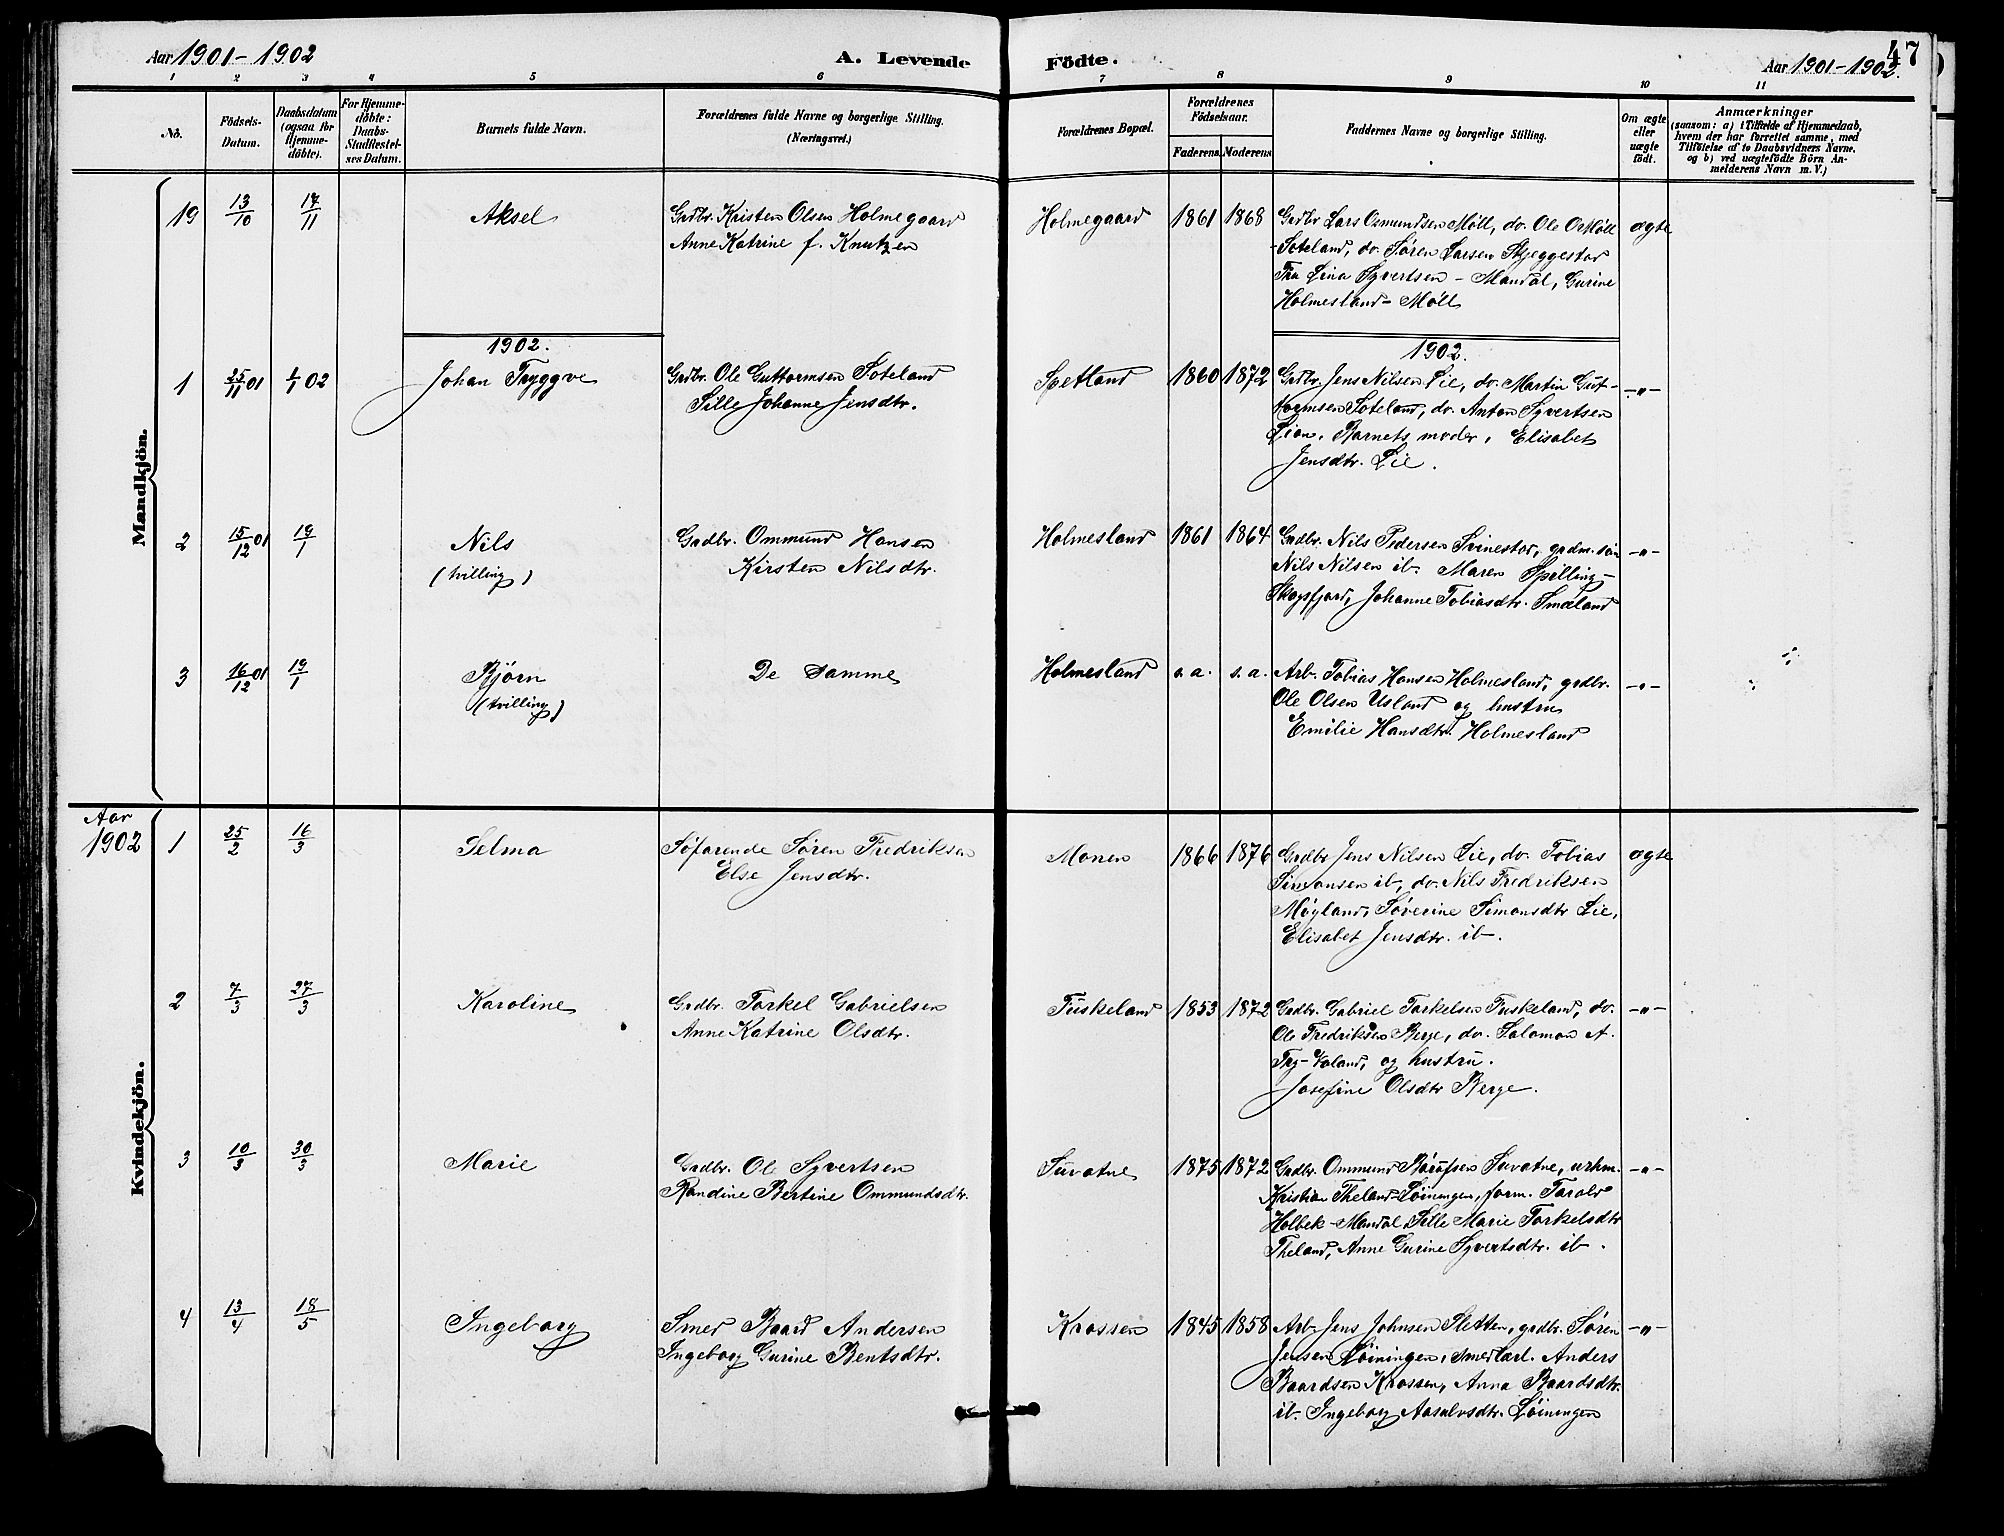 Aar 1901-1902
A. Levende
Födte.
Aar 1901-1902.
47
1 2 3 4 5 6 7 8 9 10 11
No.
Födsels-
Datum.
Daabsdatum
(ogsaa for
Hjemme-
döbte).
For Hjemme-
döbte:
Daabs-
Stadfæstel-
ses Datum.
Barnets fulde Navn.
Forældrenes fulde Navne og borgerlige Stilling.
(Næringsvei.)
Forældrenes Bopæl.
Forældrenes
Födselsaar.
Faderens. Moderens
Faddernes Navne og borgerlige Stilling.
Om ægte
eller
uægte
födt.
Anmærkninger
(saasom: a) i Tilfælde af Hjemmedaab,
hvem der har forrettet samme, med
Tilföielse af to Daabsvidners Navne,
og b) ved uægtefödte Börn An-
melderens Navn m. V.)
Mandkjön.
19 13/10 17/11 Aksel
Grdbr. Kristen Olsen Holmegaard
Anne Katrine f. Knutzen
Holmegaard 1861 1868
Grdbr Lars Osmundsen Møll, do. Ole O Møll
-Soteland, do. Søren Larsen Skjeggestad
Fru Lina Syvertsen - Mandal, Gurine
Holmesland - Møll
ægte
1902.
1902.
1 25/11 01 1/1 02 Johan Tryggve
Grdbr. Ole Guttormsen Soteland
Sille Johanne Jensdtr.
Spetland 1860 1872
Grdbr. Jens Nilsen Lie, do. Martin Gut-
tormsen Soteland, do. Anton Syvertsen
Lian, Barnets moder, Elisabet
Jensdtr. Lie.
-"-
2 15/12 01 19/1 Nils
(tvilling)
Grdbr. Ommund Hansen
Kirsten Nilsdtr.
Holmesland 1861 1864
Grdbr. Nils Pedersen Svinestad, grdm. søn
Nils Nilsen ib. Maren Spilling-
Skogsfjord, Johanne Tobiasdtr. Smeland
-"-
3 16/12 01 19/1 Bjørn
(tvilling)
De samme
Holmesland s. a. s. a.
Arb. Tobias Hansen Holmesland, grdbr.
Ole Olsen Usland og hustru
Emilie Hansdtr. Holmesland
-"-
Aar
1902
Kvindekjön.
1 25/2 16/3 Selma
Søfarende Søren Fredriksen
Else Jensdtr.
Monen 1866 1876
Grdbr Jens Nilsen Lie, do. Tobias
Simonsen ib, do. Nils Fredriksen
Møgland, Søverine Simonsdtr Lie,
Elisabet Jensdtr. ib.
ægte
2 7/3 27/3 Karoline
Grdbr. Torkel Gabrielsen
Anne Katrine Olsdtr.
Fuskeland 1853 1872
Grdbr. Gabriel Torkelsen Fuskeland, do.
Ole Fredriksen Berge, do. Salomon A.
Try-Valand, og hustru.
Josefine Olsdtr Berge.
-"-
3 10/3 30/3 Marie
Grdbr. Ole Syvertsen
Randine Bertine Ommundsdtr.
Suvatne 1875 1872
Grdbr. Ommund Børufsen Suvatne, urhm.
Kristian Theland-Løiningen, form. Tarald
Holbek-Mandal, Sille Marie Torkelsdtr
Theland, Anne Gurine Syvertsdtr. ib.
-"-
4 13/4 18/5 Ingeborg
Smed Baard Andersen
Ingeborg Gurine Bentsdtr.
Krossen 1845 1858
Arb. Jens Johnsen Sletten, grdbr. Søren
Jensen Løiningen, smedlærl. Anders
Baardsen Krossen, Anna Baardsdtr.
ib. Ingeborg Aasulvsdtr. Løiningen
-"-